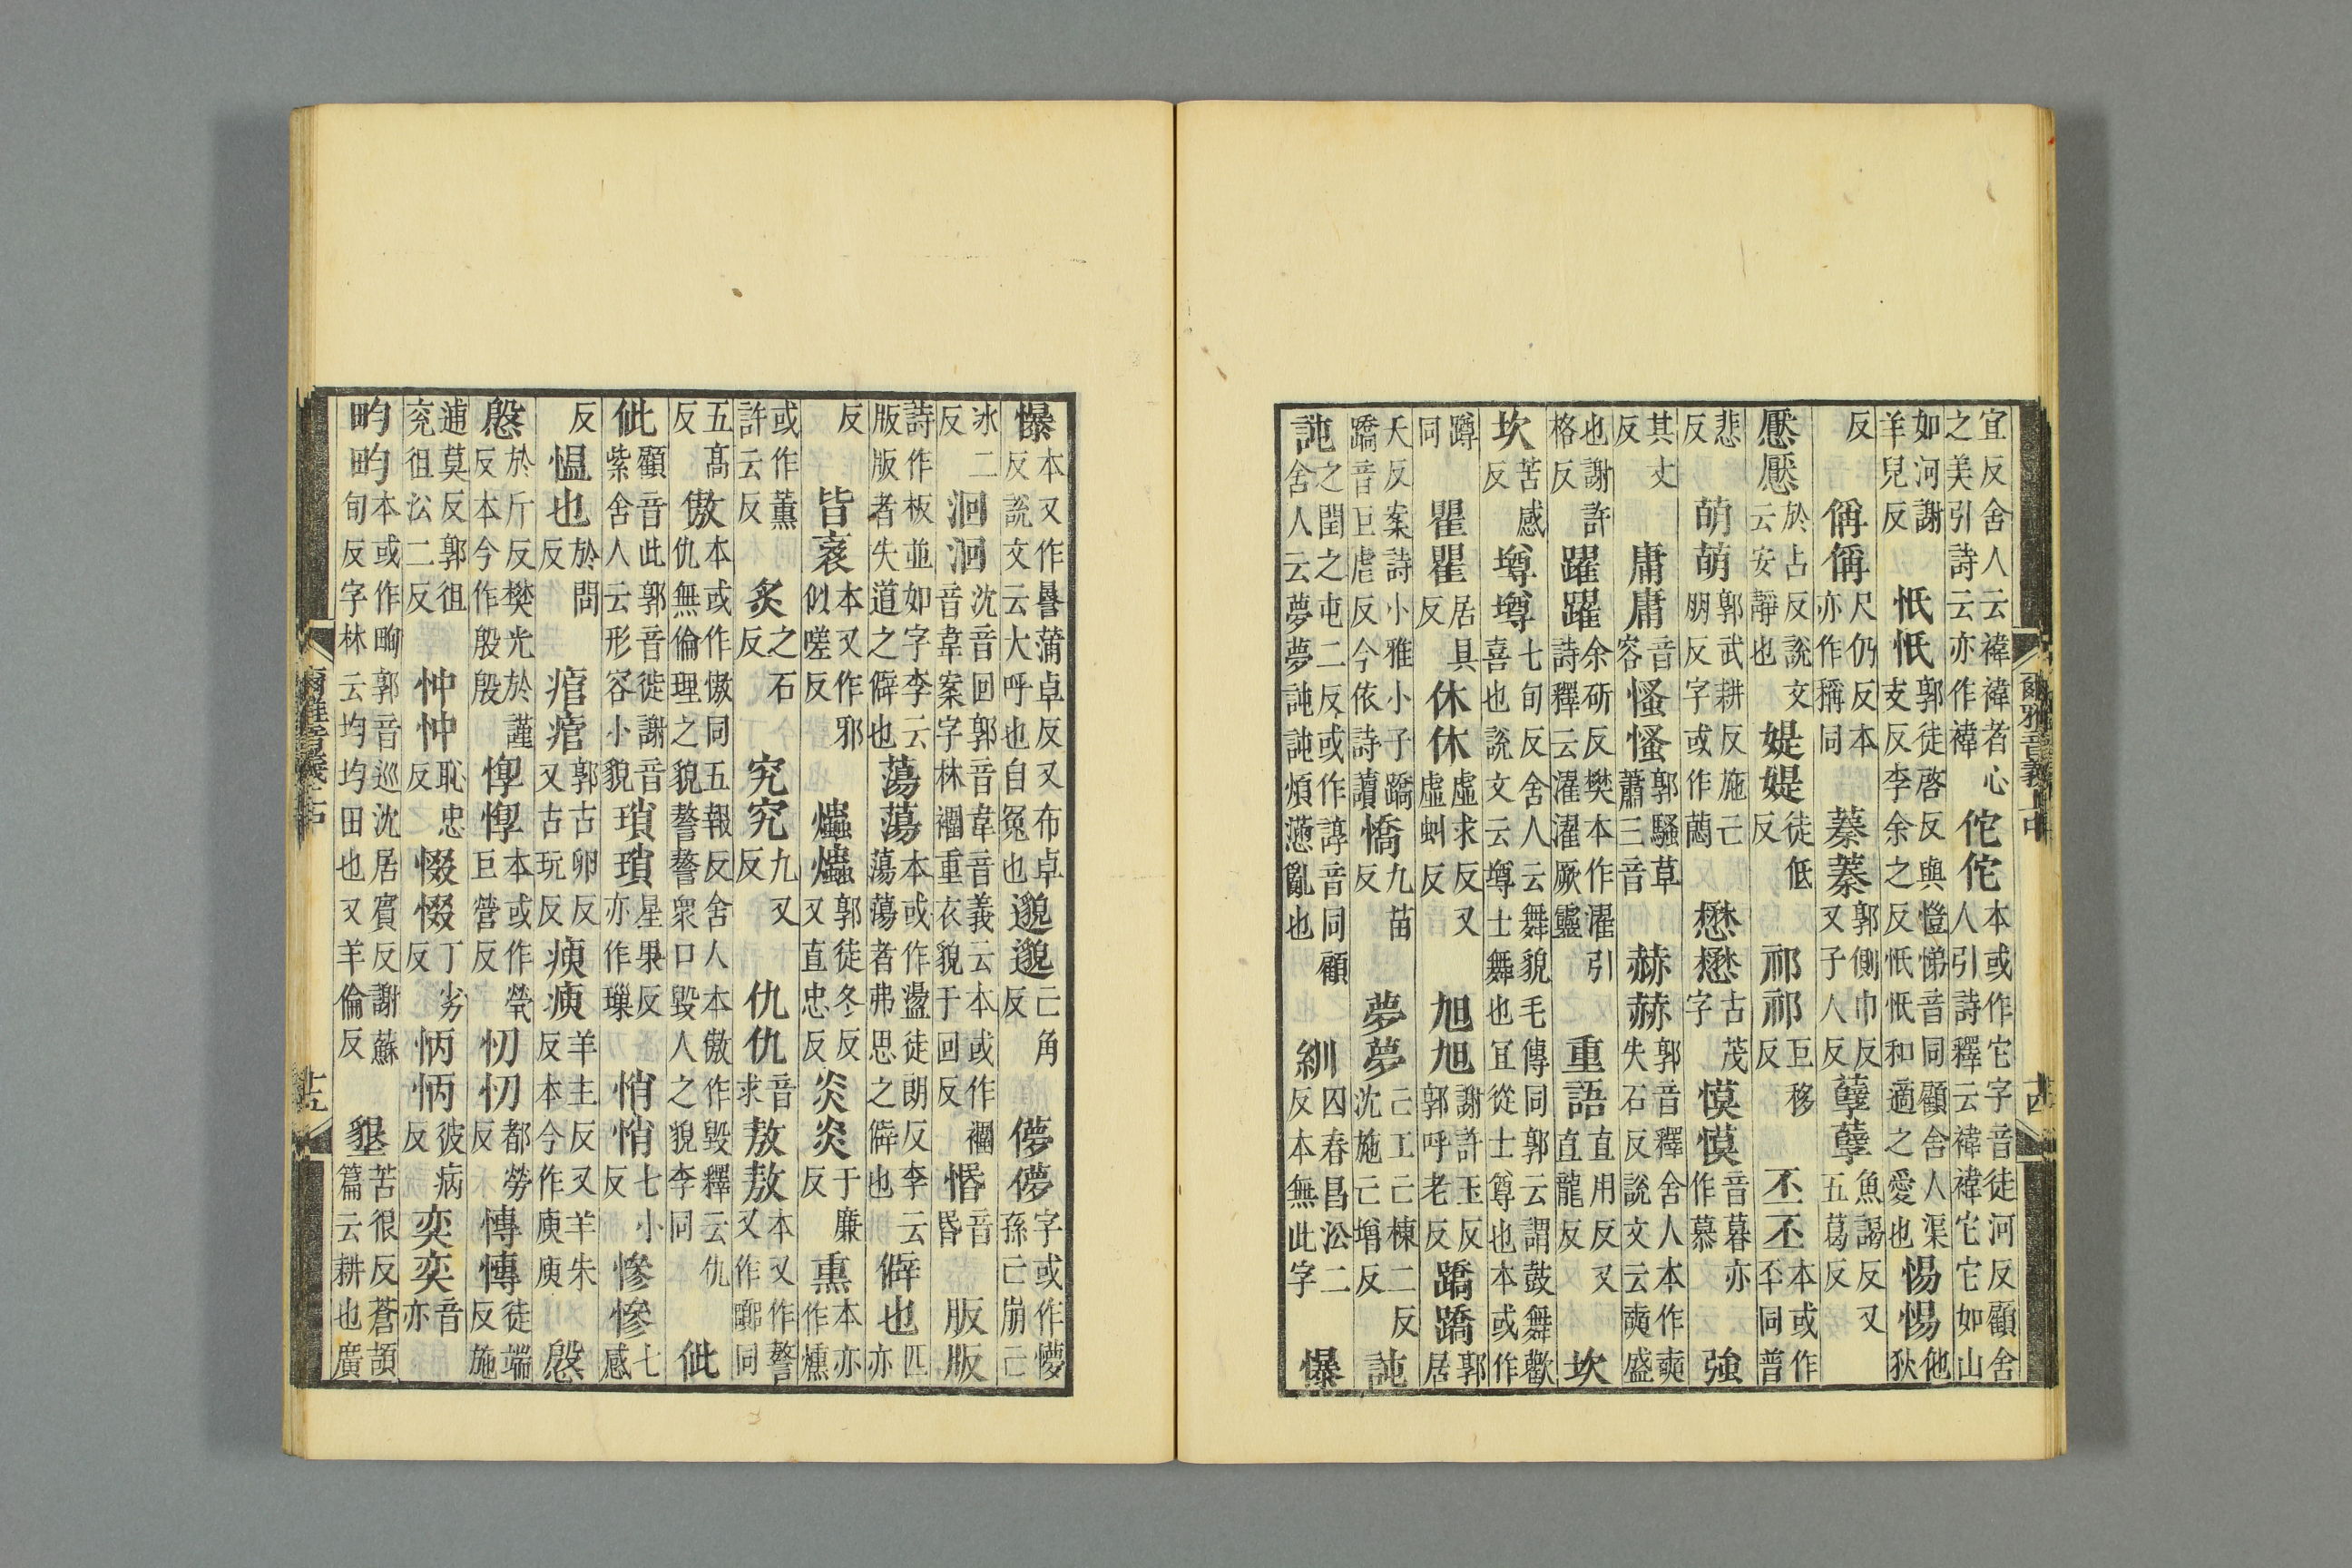 爾雅音義上中
十四
宜反舍人云褘褘者心之美引詩云亦作褘佗佗本或作它字音徒河反顧舍人引詩釋云褘褘它它如山
如河謝羊兒反忯忯郭徒啓反與愷悌音同顧舍人渠支反李余之反忯和適之愛也惕惕他狄
反偁偁尺仍反本亦作稱同蓁蓁郭側巾反又子人反孽孽魚謁反又五葛反
懕懕於占反說文云安也媞媞徒低反祁祁巨移反丕丕本或作㔻同普
悲反萌萌郭武耕反施亡朋反字或作蕄懋懋古茂字慔慔音暮亦作慕強
其丈反庸庸音容慅慅郭騷草蕭三音赫赫郭音釋舍人本作奭失石反說文云奭盛
也謝許格反躍躍余斫反樊本作濯引詩釋云濯濯厥靈重語直用反又直龍反坎
坎苦感反墫墫七旬反舍人云舞貌毛傳同郭云謂鼓舞歡喜也說文云墫士舞也宜從士尊也本或作
蹲同瞿瞿居具反休休虛求反又虛虯反旭旭謝許玉反郭呼老反蹻蹻郭居
夭反案詩小雅小子蹻蹻音巨虐反今依詩讀憍九苗反夢夢亡工亡棟二反沈施亡增反訰
訰之閏之屯二反或作諄音同顧舍人云夢夢訰訰煩懣亂也紃囚春昌沿二反本無此字懪
懪本又作㬥蒲卓反又布卓反說文云大呼也自冤也邈邈亡角反儚儚字或作懜孫亡崩亡
冰二反洄洄沈音回郭音韋音義云本或作音韋案字林重衣貌于回反惛音昏版版
詩作板並如字李云版版者失道之僻也蕩蕩本或作盪徒朗反李云蕩蕩者弗思之僻也僻也匹亦
反皆衺本又作邪似嗟反爞爞郭徒冬反又直忠反炎炎于廉反熏本亦作燻
或作薰許云反炙之石反究究九又反仇仇音求敖敖本又作謷又作同
五高反傲本或作慠同五報反舍人本傲作毀釋云仇仇無倫理之貌謷謷衆口毀人之貌李同佌
佌顧音此郭音徙謝音紫舍人云形容小貌瑣瑣星果反亦作璅悄悄七小反慘慘七感
反慍也於問反痯痯郭古卵反又古玩反瘐瘐羊主反又羊朱反本今作庾庾慇
慇於斤反樊光於謹反本今作殷殷惸惸本或作煢巨營反忉忉都勞反慱慱徒端反施
逋莫反郭徂兖徂沿二反忡忡恥忠反惙惙丁劣反怲怲彼病反奕奕音亦
畇畇本或作㽦郭音巡沈居賓反謝蘇旬反字林云均均田也又羊倫反墾苦很反蒼頡篇云耕也廣